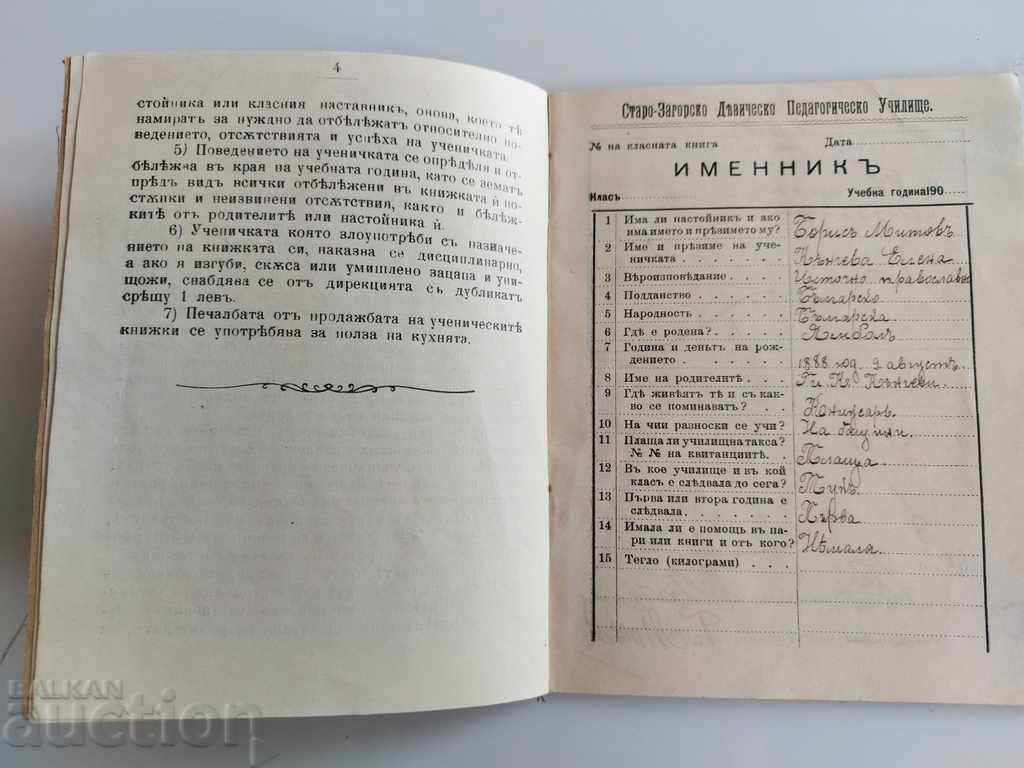 4
стойника или класния наставникъ, онова, което тѣ
намиратъ за нуждно да отбѣлежатъ относително по-
ведението, отсѫтствията и успѣха на ученичката.
5) Поведението на ученичката се опрѣдѣля и от-
бѣлежва въ края на учебната година, като се зематъ
прѣдъ видъ всички отбѣлѣжени въ книжката ѝ по-
стѫпки и неизвинени отсѫтствия, както и бѣлѣж-
китѣ отъ родителитѣ или настойника ѝ.
6) Ученичката която злоупотрѣби съ назначе-
нието на книжката си, наказва се дисциплинарно,
а ако я изгуби, скѫса или умишлено зацапа и уни-
щожи, снабдява се отъ дирекцията съ дубликатъ
срѣщу 1 левъ.
7) Печалбата отъ продажбата на ученическитѣ
книжки се употрѣбява за полза на кухнята.
Старо-Загорско Дѣвическо Педагогическо Училище.
№ на класната книга Дата
ИМЕННИКЪ
Класъ Учебна година 190
1 Има ли настойник и ако
има името и прѣзимето му? Борисъ Митовъ
2 Име и прѣзиме на уче-
ничката Пѣнчева Елена
3 Вѣроизповѣдание Источно православно
4 Подданство Бѫлгарско
5 Народность Бѫлгарска
6 Гдѣ е родена? Ямболъ
7 Година и деньтъ на рож-
дението 1888 год. 9 августъ
8 Име на родителитѣ
9 Гдѣ живѣятъ тѣ и съ как-
во се поминаватъ?
10 На чии разноски се учи? На бащини
11 Плаща ли училищна такса?
№ № на квитанциитѣ. Плаща
12 Въ кое училище и въ кой
класъ е слѣдвала до сега? Тукъ
13 Първа или втора година е
слѣдвала Първа
14 Имала ли е помощь въ па-
ри или книги и отъ кого? Нѣмала
15 Тегло (килограми)
BALKAN
auction